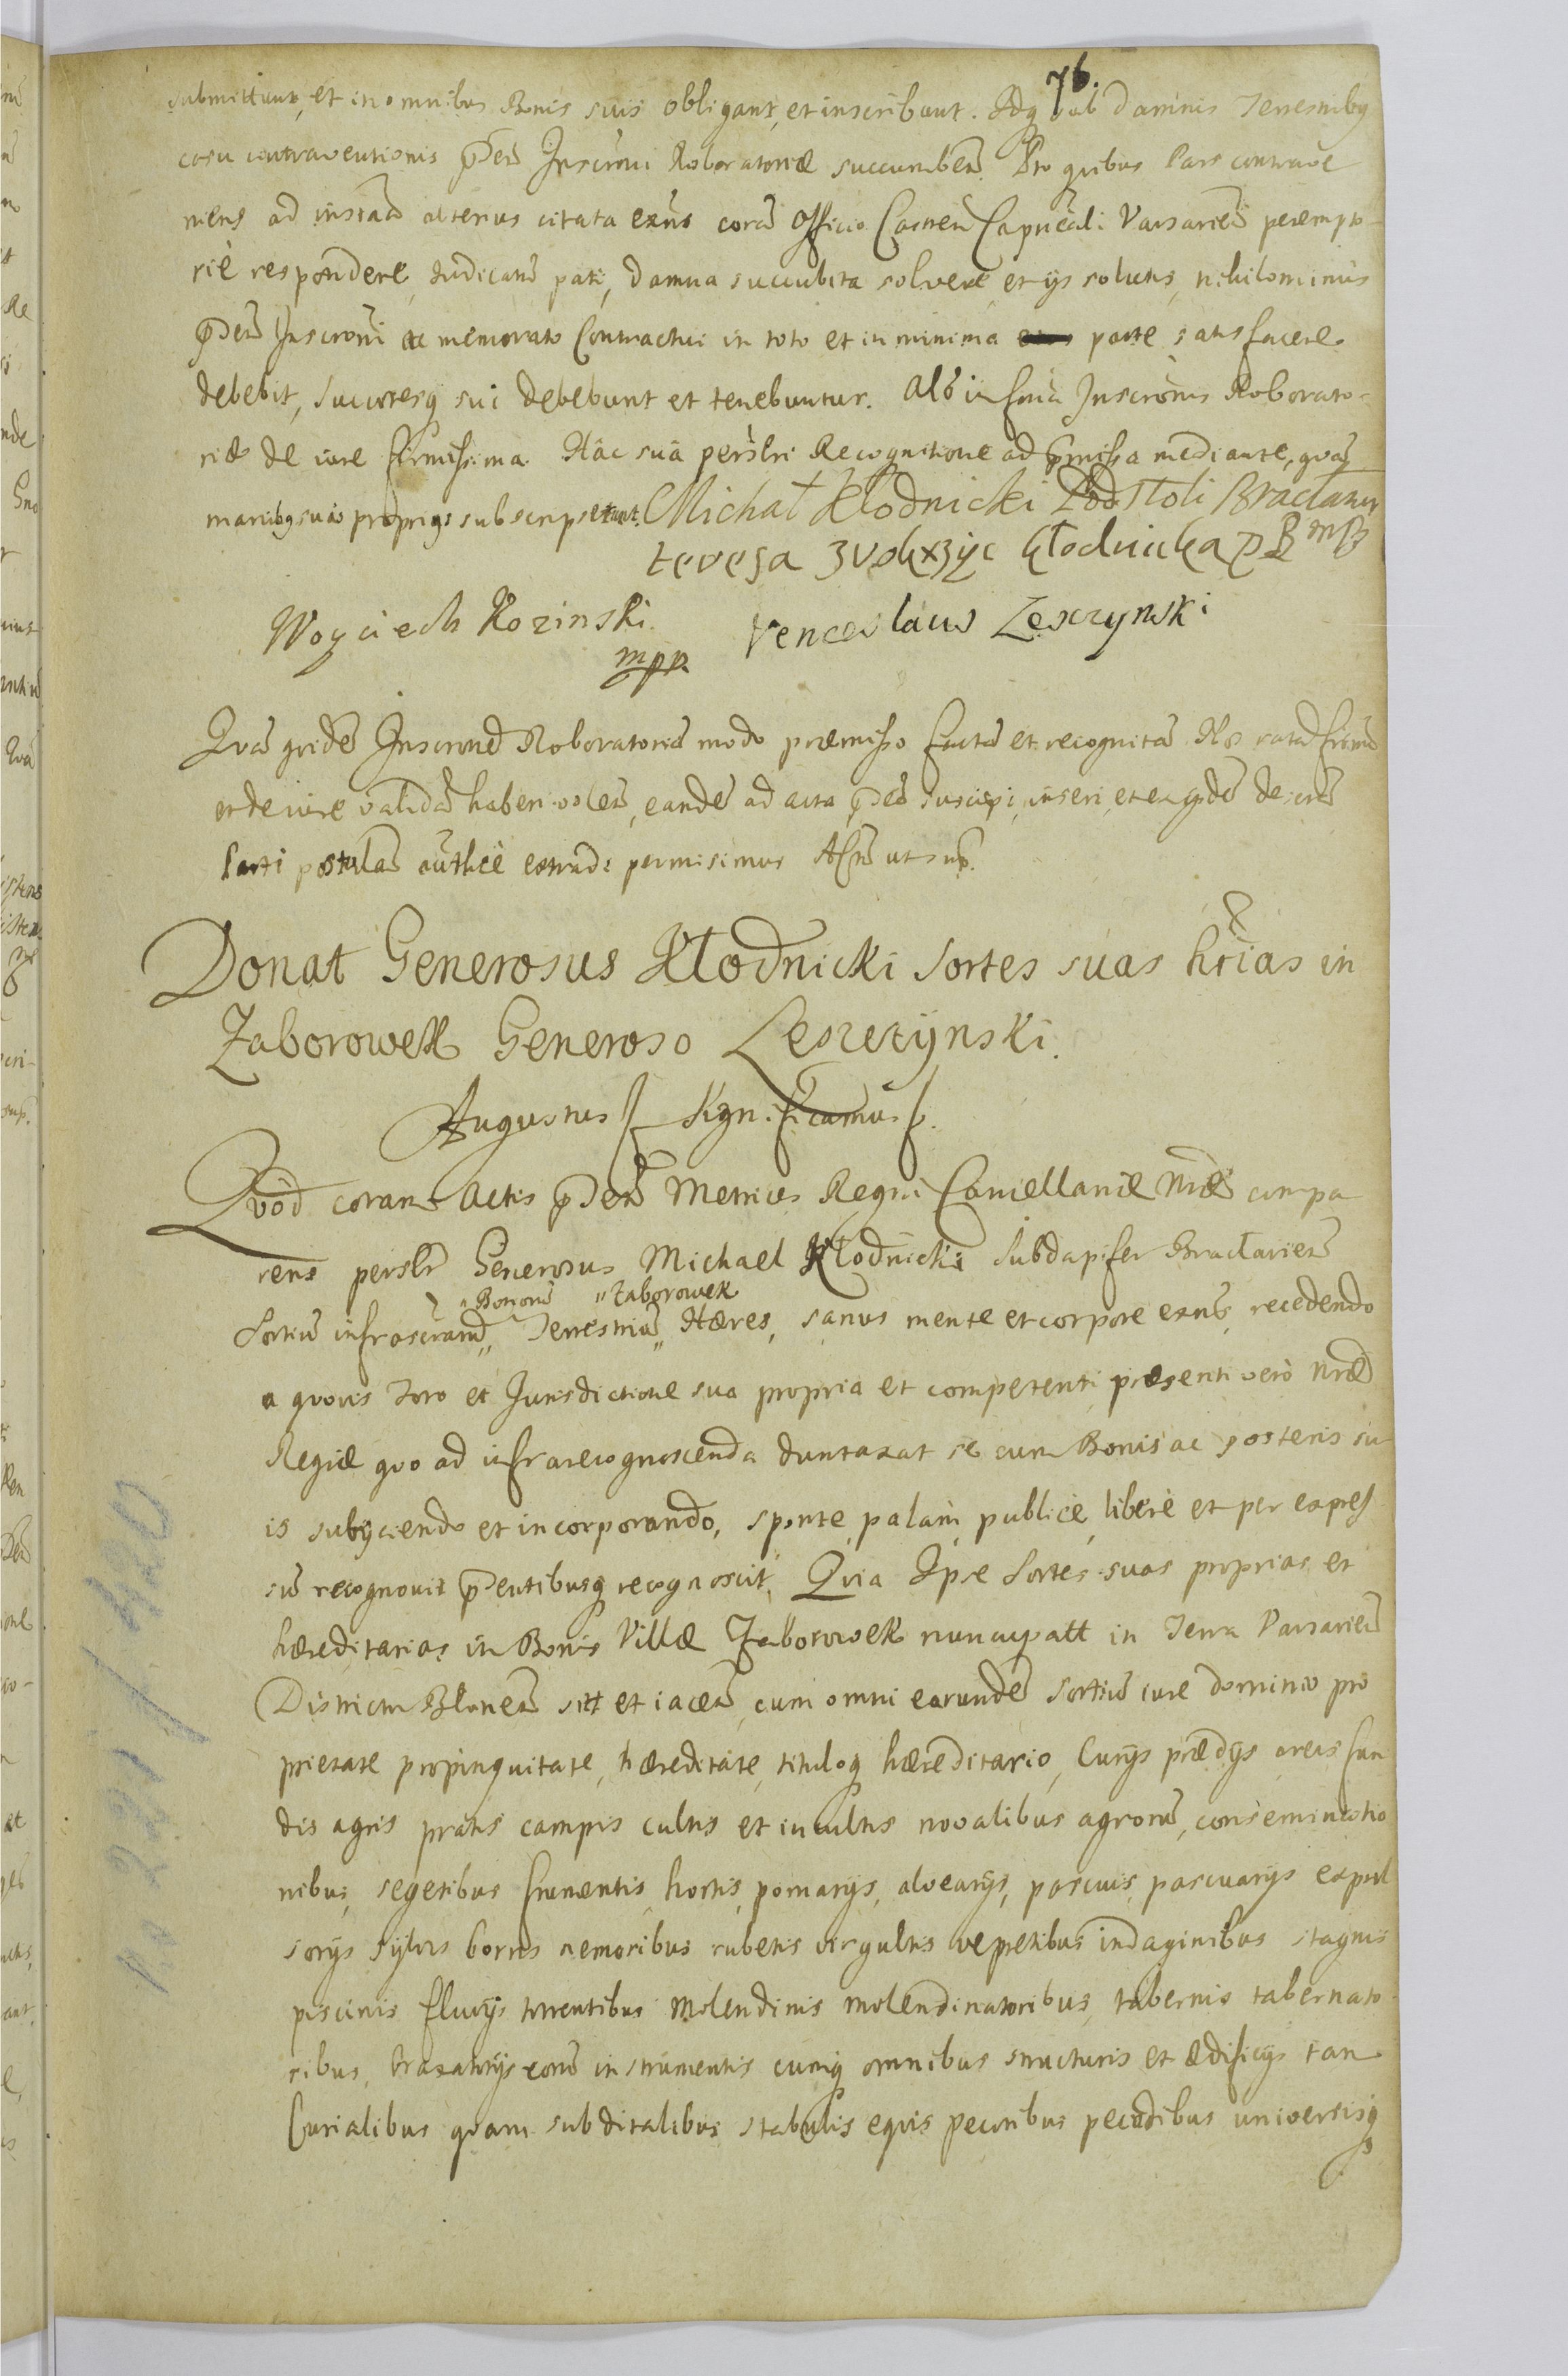 76.
submittunt, et in omnibus Bonis suis obligant, et inscribunt. Idq sub damnis Terrestribq
casu contraventionis pntm Inscrõni Roboratoriæ succumben. Pro quibus Pars contrave
niens ad instãm alterius citata exñs corã Officio Castren Capitali Varsavien perempto
riè respondere, Iudicatũ pati, damna succubita solvere, et ijs solutis, nihilominus
pnti Inscrõni ac memorato Contractui in toto et in minima parte satisfacere
debebit, Succoresq sui debebunt et tenebuntur. Alõ in formã Inscrõnis Roborato-
riæ de iure firmissima. Hac suâ persõli Recognitione ad pmissa mediante, quã
manibq suis proprijs subscripserunt. Michał Kłodnicki PodStoli Bracławs
teresa  kłodnicka P B mp
Woyciech Kozinski mpp. Venceslaus Leszczynski
Quã quidẽ Inscronẽ Roboratoriã modo præmisso factã et recognitã Nos ratã firmã
et de iure validã haberi volen, eandẽ ad acta pntia suscipi, inseri, et ex ijsdẽ descriẽ
Parti postulan authcè extradi permisimus Actũ ut sup.
Donat Generosus Kłodnicki Sortes suas hrias in
Zaborowek Generoso Leszczÿnski.
Augustus Significamus
Quòd coram Actis pntibus Metrices Regni Cancellariæ nræ compa
rens persõlr Generosus Michael Kłodnicki Subdapifer Bracłavien
" Bonorũ " Zaborowek
Sortiũ infrascrarũ " Terrestriũ " Hæres, sanus mente et corpore exñs, recedendo
a quovis Foro et Iurisdictione sua propria et competenti, præsenti verò nræ
Regiæ quo ad infrarecognoscenda duntaxat se cum Bonis ac posteris su
is subijciendo et incorporando, sponte, palàm, publicè, liberè et per expres
sũ recognovit pntibusq recognoscit. Quia Ipse Sortes suas proprias et
hæreditarias in Bonis Villæ Zaborowek nuncupatt in Terra Varsavien
Districtu Blonen sitt et iacen, cum omni earundẽ Sortiũ iure dominio pro
prietate propinquitate, hæreditate, tituloq hæreditario, Curijs prædijs areis fun
dis agris pratis campis cultis et incultis novalibus agrorũ, conseminatio
nibus, segetibus frumentis, hortis, pomarijs, alvearijs, pascuis, pascuarijs expul
sorijs sylvis borris nemoribus rubetis virgultis vepretibus indaginibus stagnis
piscinis fluvijs torrentibus Molendinis molendinatoribus, tabernis tabernato-
ribus, braxatorijs eorũ instrumentis cumq omnibus structuris et ædificijs tam
Curialibus quam subditalibus stabulis equis pecoribus pecudibus universisq